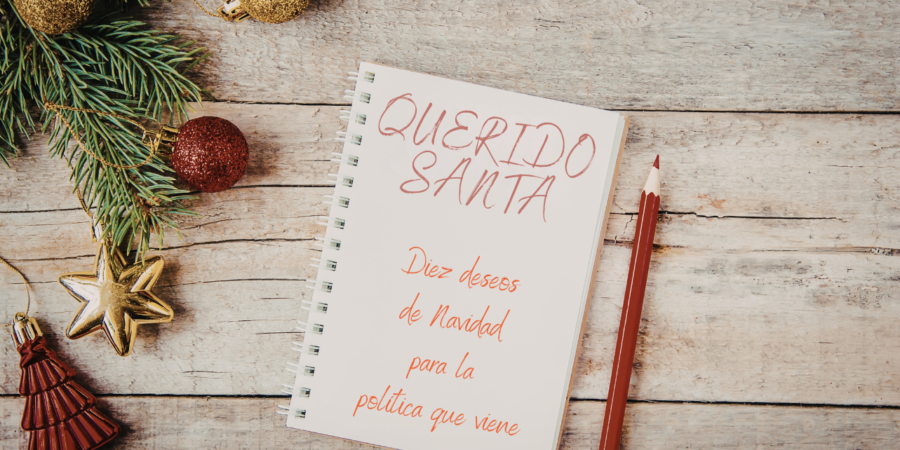 QUERIDO
SANTA
Diez deseos
de Navidad
para la
política que viene